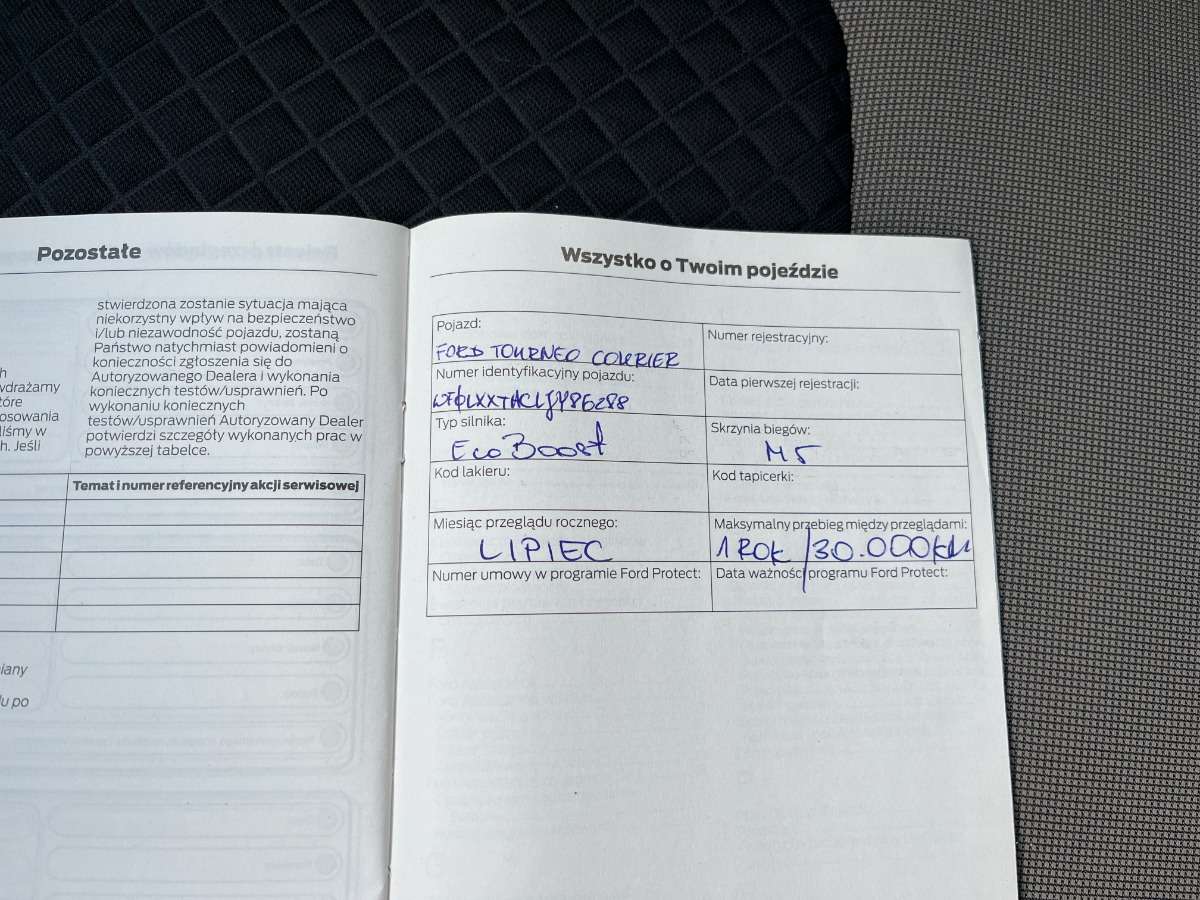 Pozostałe
stwierdzona zostanie sytuacja mająca
niekorzystny wpływ na bezpieczeństwo
i/lub niezawodność pojazdu, zostaną
Państwo natychmiast powiadomieni o
konieczności zgłoszenia się do
Autoryzowanego Dealera i wykonania
koniecznych testów/usprawnień. Po
wykonaniu koniecznych
testów/usprawnień Autoryzowany Dealer
potwierdzi szczegóły wykonanych prac w
powyższej tabelce.
h
wdrażamy
tóre
osowania
liśmy w
h. Jeśli
Temat i numer referencyjny akcji serwisowej
iany
du po
Wszystko o Twoim pojeździe
Pojazd:
FORD TOURNEO COURIER
Numer rejestracyjny:
Numer identyfikacyjny pojazdu:
Data pierwszej rejestracji:
Typ silnika:
EcoBoost
Skrzynia biegów:
M5
Kod lakieru:
Kod tapicerki:
Miesiąc przeglądu rocznego:
LIPIEC
Maksymalny przebieg między przeglądami:
1 ROK / 30.000 km
Numer umowy w programie Ford Protect:
Data ważności programu Ford Protect: